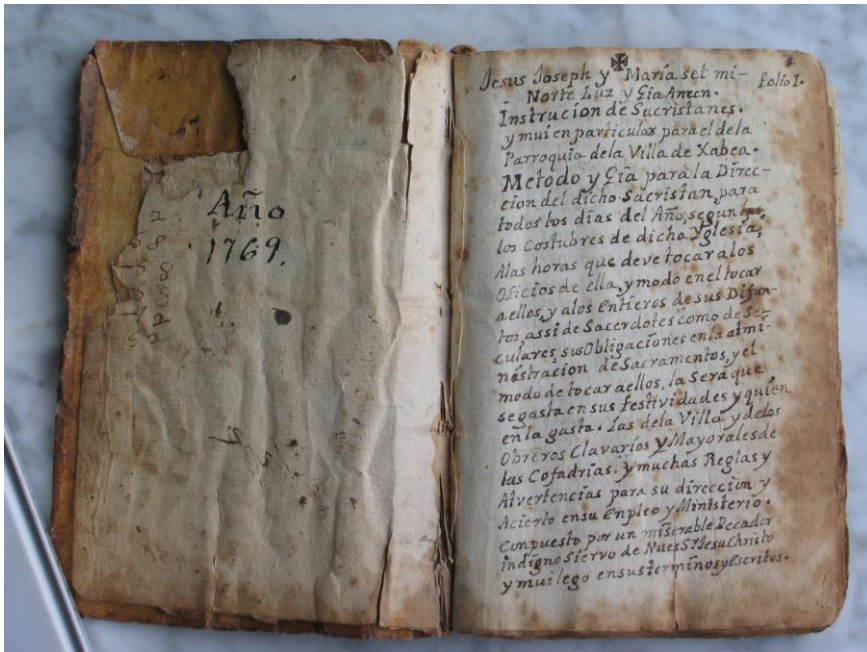 Año
1769.
2
8
8
8
2
2
✠
Jesus Joseph y Maria set mi-
folio 1.
Norte Luz y Gia Amen.
Instrucion de Sacristanes.
y mui en particular para el dela
Parroquia dela Villa de Xabea.
Metodo y Gia para la Direc-
cion del dicho Sacristan, para
todos los dias del Año, segun
los Costubres de dicha Yglesia,
Alas horas que deve tocar alos
Oficios de ella, y modo en el tocar
aellos, y alos Entieros de sus Difun-
tos, assi de Sacerdotes como de Se-
culares, sus Obligaciones en la atmi-
nistracion de Sacramentos, y el
modo de tocar aellos, la Sera que
se gasta en sus festividades y quien
en la gasta. Las dela Villa y delos
Obreros Clavarios y Mayorales de
las Cofadrias. y muchas Reglas y
Alvertencias para su direccion y
Acierto ensu Enpleo y Ministerio.
Conpuesto por un miserable Pecador
indigno Siervo de Nues Sr. Jesu Christo
y mui lego en sus terminos y Escritos.